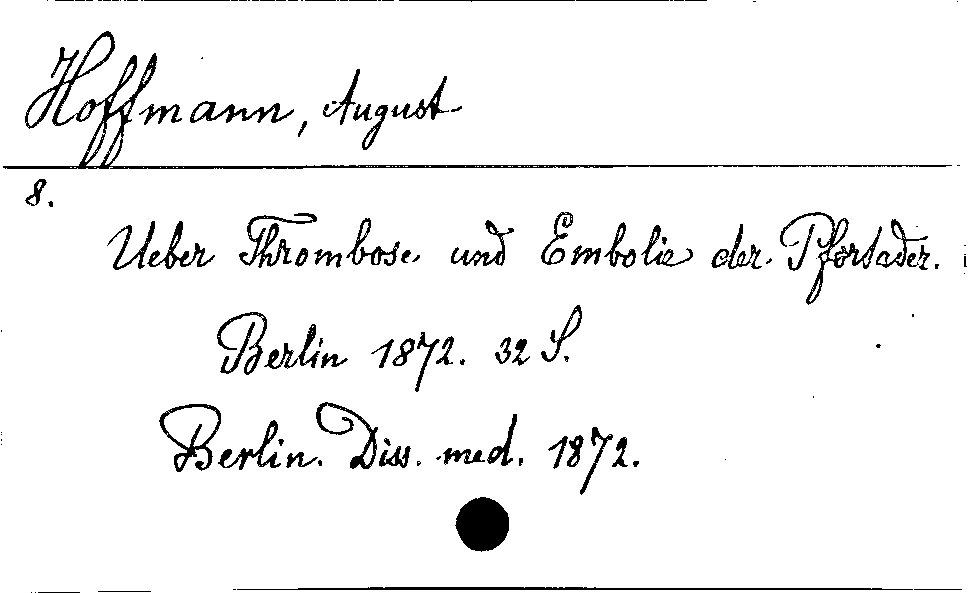 Hoffmann, August
8.
Ueber Thrombose und Embolie der Pfortader.
Berlin 1872. 32 S.
Berlin. Diss. med. 1872.